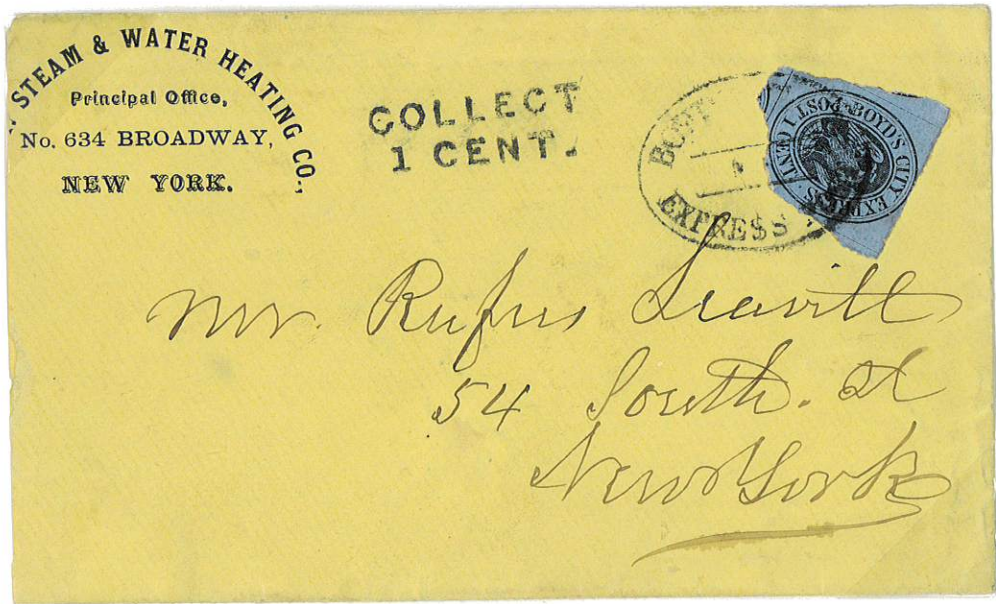 STEAM & WATER HEATING CO.,
Principal Office,
No. 634 BROADWAY,
NEW YORK.
COLLECT
1 CENT.
EXPRESS
BOYD'S CITY EXPRESS POST 1 CENT
Mr. Rufus Leavitt
54 South. St
New York